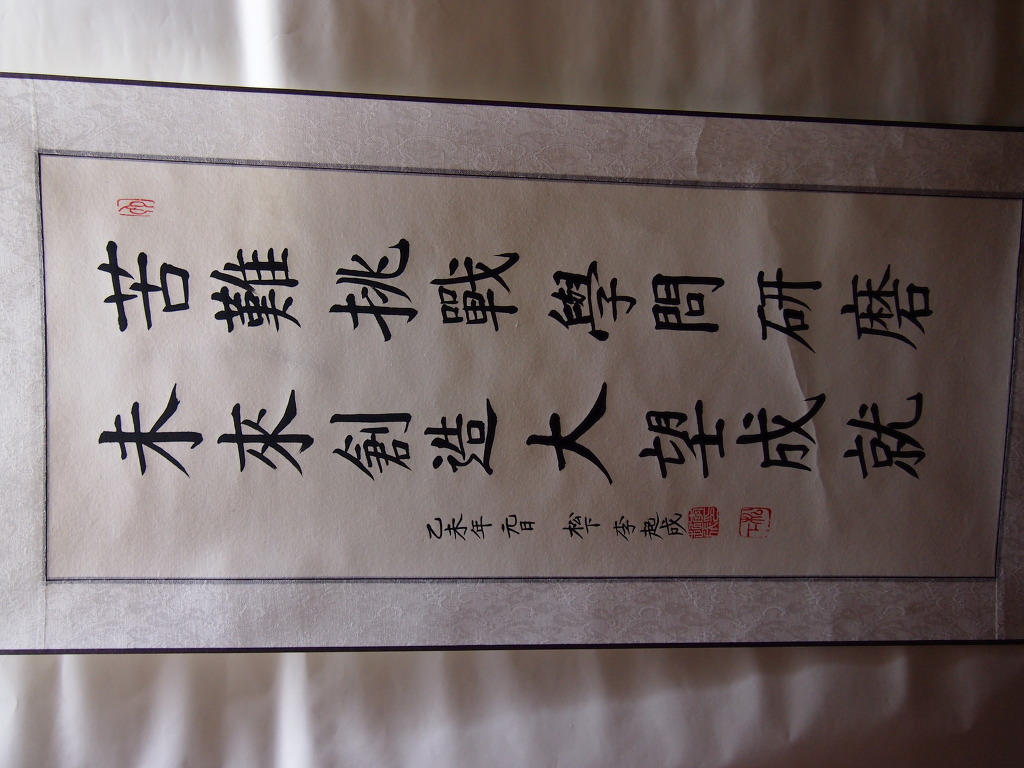 苦難挑戰學問研磨
未來創造大望成就
乙未年 元日 松下 李起成
松下